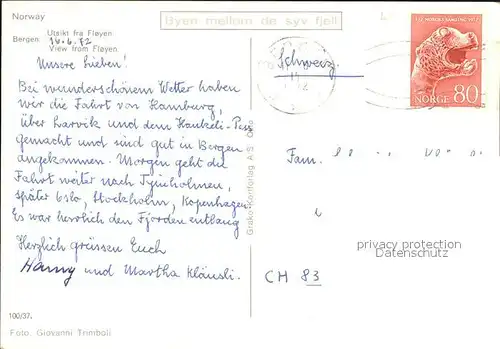 Norway
Byen mellem de syv fjell
Bergen Utsikt fra Fløyen
16.6.72
View from Fløyen
Unsere Lieben!
Bei wunderschönem Wetter haben
wir die Fahrt von Hamburg,
über Larvik und dem Haukeli-Pass
gemacht und sind gut in Bergen
angekommen. Morgen geht die
Fahrt weiter nach Tyinholmen,
später Oslo, Stockholm, Kopenhagen.
Es war herrlich den Fjorden entlang
Herzlich grüssen Euch
Hanny und Martha Kläusli.
100/37.
Foto: Giovanni Trimboli
Grako Kortforlag A/S Oslo
Schweiz
NORGE 80
Fam.
privacy protection
Datenschutz
CH 83